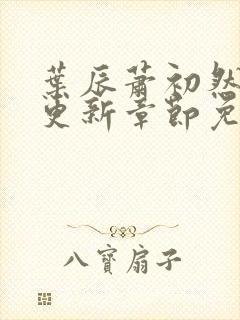 葉辰蕭初然
更新章節免
八寶扇子